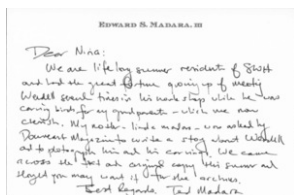 EDWARD S. MADARA, III
Dear Nina:
We are life long summer resident of
and had the great fortune going up of meeting
Wendell several times in his work shop while he was
carving birds for my grandparents - which we now
cherish. My mother - linda madara - was asked by
Downeast Magazine to write a story about Wendell
and to photograph him and his carving. We came
across the original copy this summer and
thought you may want it for the archives.
Best Regards, Ted Madara